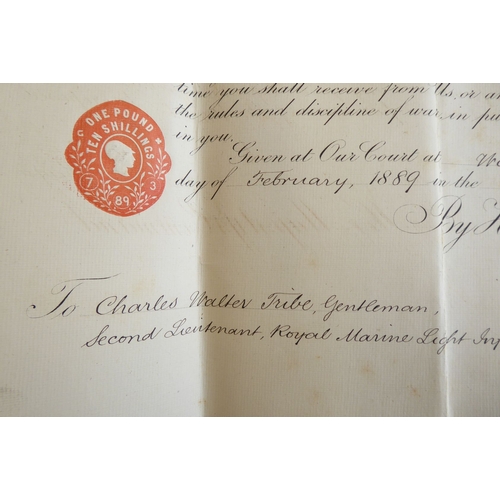 time you shall receive from Us, or
the rules and discipline of war, in
in you.
Given at Our Court at
day of February, 1889 in the
By
ONE POUND
TEN SHILLINGS
7 3
89
To Charles Walter Tribe, Gentleman,
Second Lieutenant, Royal Marine Light